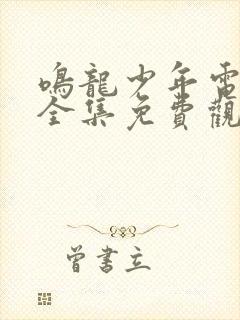 鳴龍少年電
全集免費觀
曾書立